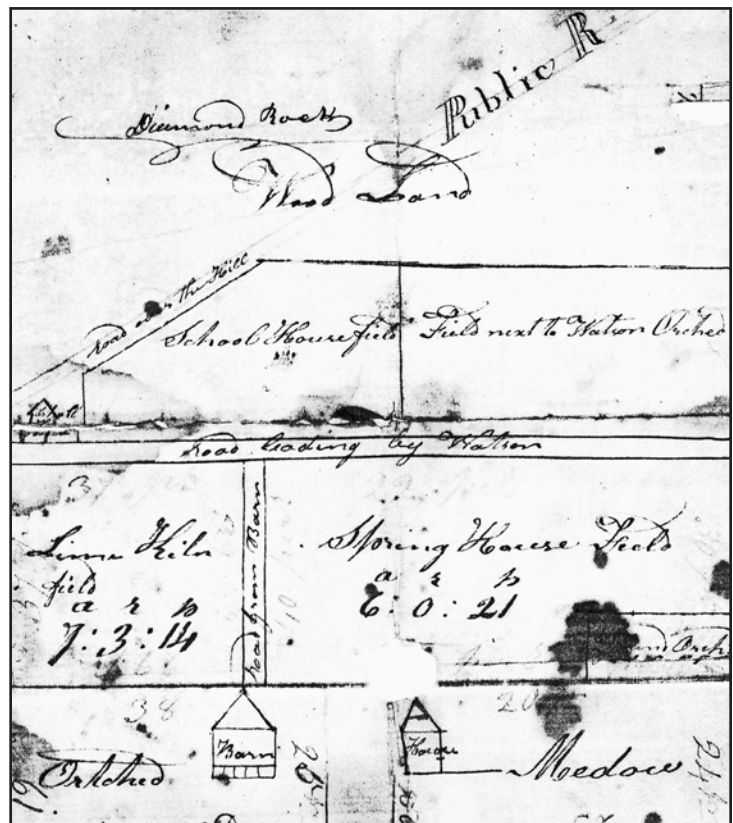 Public R
Diamond Rock
Wood Land
Road over the Hill
School House field
Field next to Watson Orched
Road leading by Watson
37
Lime Kiln
field
a r p
7:3:14
Road from Barn
Spring House Field
a r p
6:0:21
Orch
38
20
Barn
House
Orched
Medow